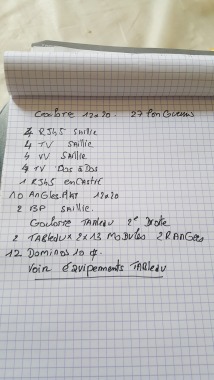 Goulotte 12x20. 27 Longueurs
4 RJ45 Saillie
4 TV Saillie
4 VV Saillie
4 TV Dos à Dos
1 RJ45 encastré
10 Angles Plat 12x20
2 BP Saillie.
Goulotte Tableau 2e Droite
2 Tableaux 2x13 Modules 2 Rangées
12 Dominos 10
Voir équipements Tableau